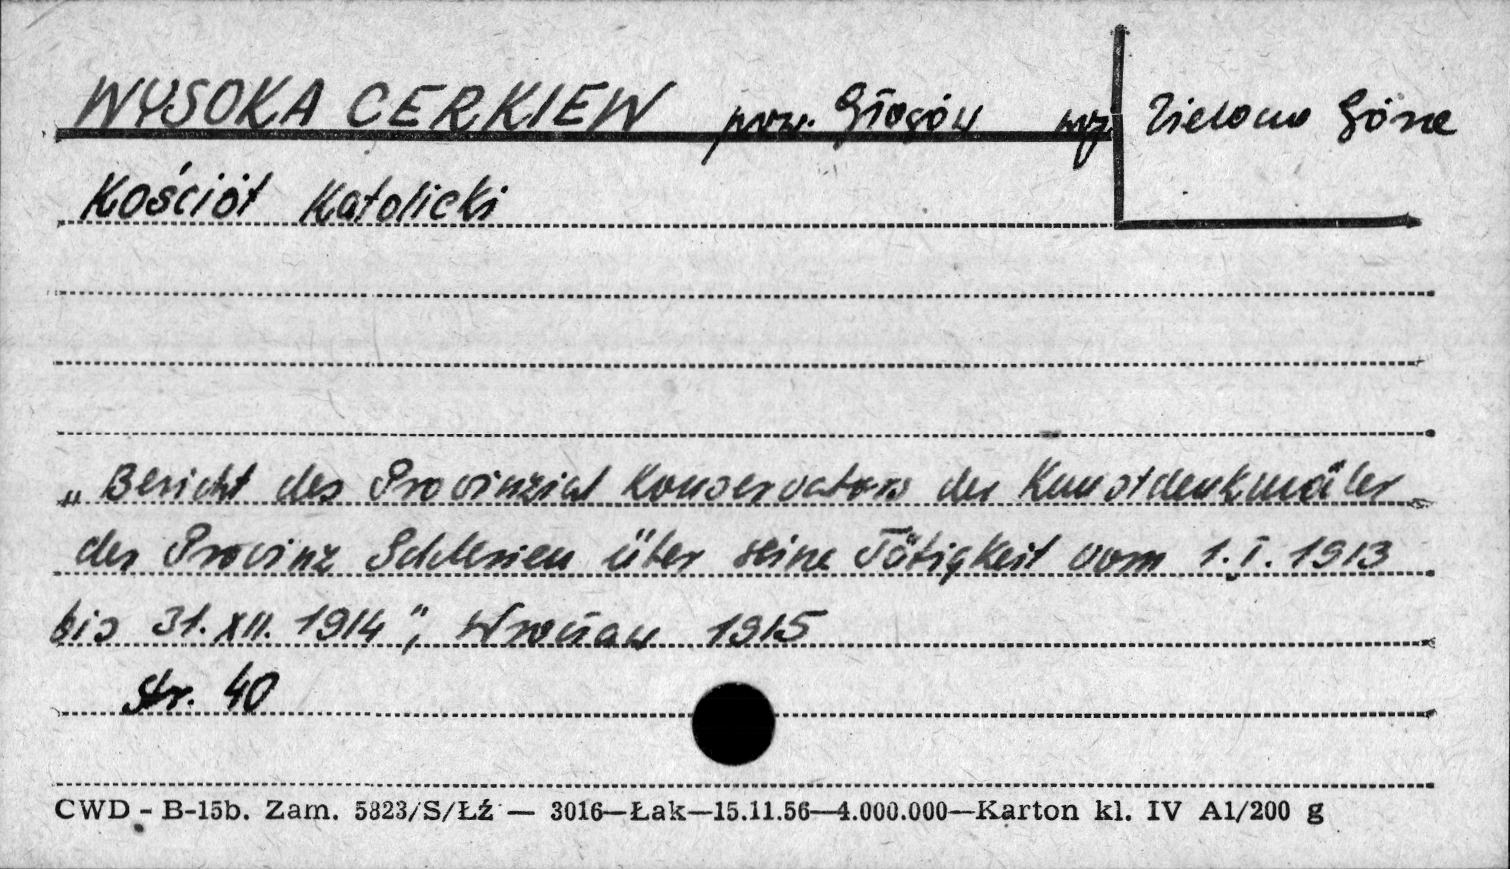 WYSOKA CERKIEW pow. Głogów wj. Zielona Góra
Kościół Katolicki
„Bericht des Provinzial Konservators der Kunstdenkmäler
der Provinz Schlesien über seine Tätigkeit vom 1.I.1913
bis 31.XII.1914", Wrocław 1915
str. 40
CWD - B-15b. Zam. 5823/S/Łź — 3016—Łak—15.11.56—4.000.000—Karton kl. IV A1/200 g